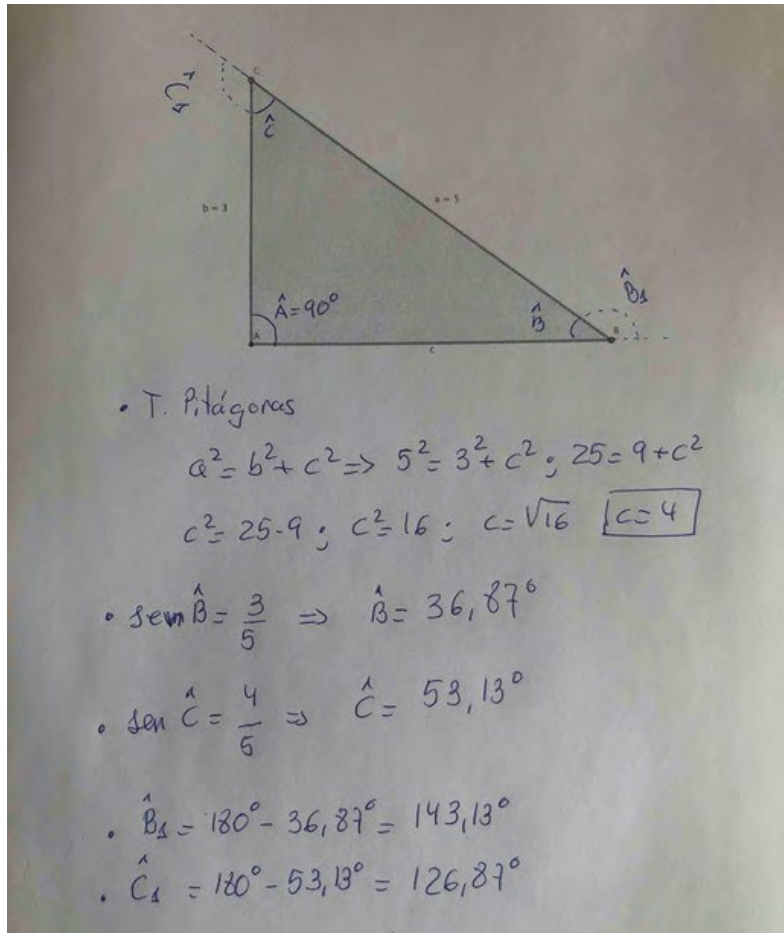 C
Ĉ₁
Ĉ
b = 3
a = 5
B̂₁
Â=90°
B̂
A
B
c
• T. Pitágoras
a²=b²+c² => 5²=3²+c² ; 25=9+c²
c²=25-9 ; c²=16 ; c=√16 c=4
• sen B̂ = 3/5 => B̂ = 36,87°
• sen Ĉ = 4/5 => Ĉ = 53,13°
• B̂₁ = 180° - 36,87° = 143,13°
• Ĉ₁ = 180° - 53,13° = 126,87°